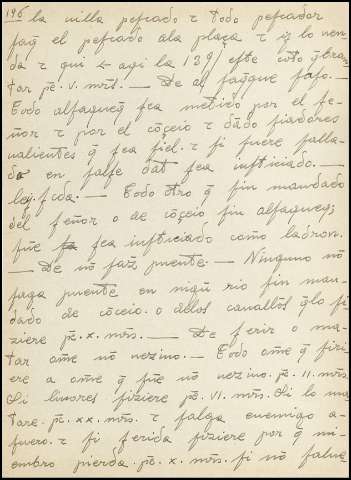 196 la uilla pescado τ todo pescador
faq̃ el pescado ala plaça τ y lo uen
da τ qui ← aqi la 129/ este coto q̃bran
tar pẽ. v. mr̃s. — De al faq̃que faso. —
Todo alfaqueq̃ sea metido por el se-
ñor τ por el cõçeio τ dãdo fiadores
ualientes q̃ sea fiel. τ si fuere falla-
do en false dat sea iustiçiado. —
ley. — Todo otro q̃ sin mandado
del señor o de cõçeio sin alfaqueq̃;
fue sea iustiçiado como ladron.
— De nõ faz̃ puente. — Ninguno nõ
faga puente en nigũ rio sin man-
dado de cõçeio. o delos cauallos q̃lo fi
ziere pẽ. x. mr̃s. — De ferir o ma-
tar ome nõ uezino. — Todo ome q̃ firi-
ere a ome q̃ fue nõ uezino. pẽ. II. mr̃s.
Si liuores fiziere pẽ. VI. mr̃s. Si lo ma
tare. pẽ. xx. mr̃s. τ salga enemigo a-
fuero. τ si ferida fiziere por q̃ mi-
embro pierda. pẽ. x. mr̃s. si nõ salua